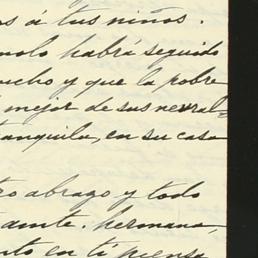 os á tus niños.
nolo habrá seguido
ucho y que la pobre
mejor de sus neural=
tanquila, en su casa
tro abrazo y todo
tante. hermana,
nto en ti piensa